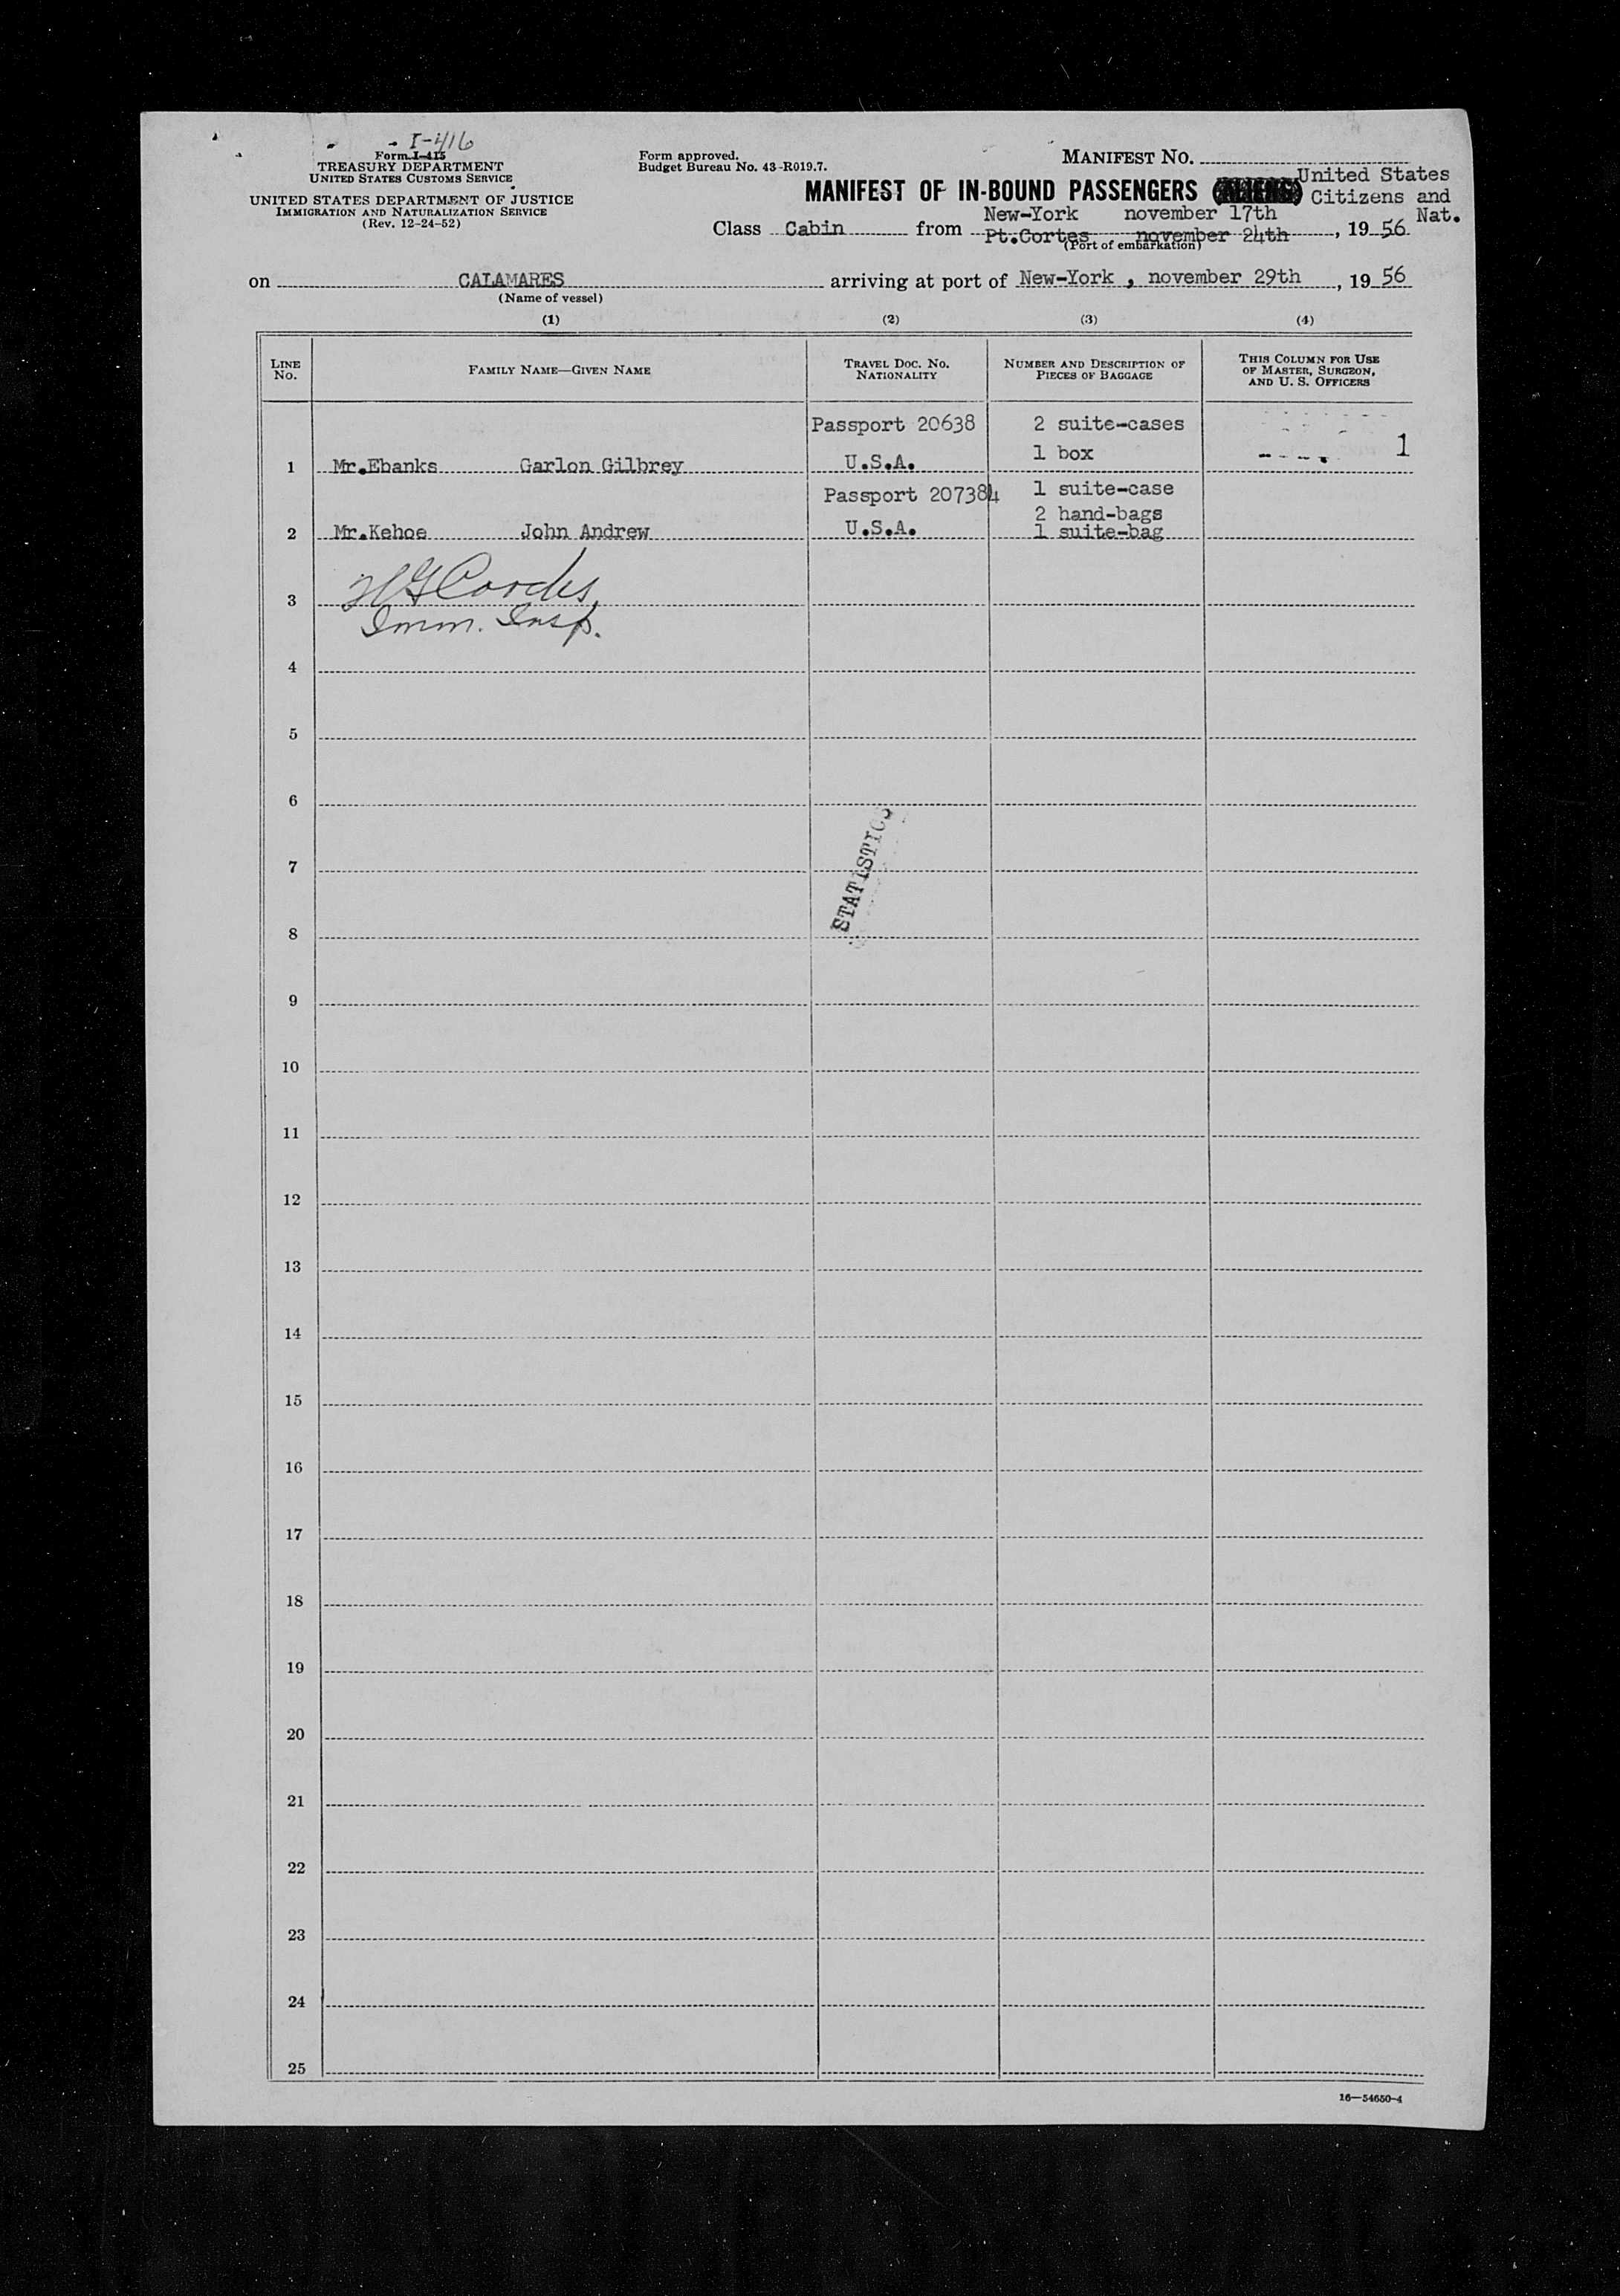 I-416
Form I-415
TREASURY DEPARTMENT
UNITED STATES CUSTOMS SERVICE
UNITED STATES DEPARTMENT OF JUSTICE
IMMIGRATION AND NATURALIZATION SERVICE
(Rev. 12-24-52)
Form approved.
Budget Bureau No. 43-R019.7.
MANIFEST NO.
MANIFEST OF IN-BOUND PASSENGERS (ALIENS) United States
Citizens and
Nat.
New-York november 17th
Class Cabin from Pt.Cortes november 24th, 1956
(Port of embarkation)
on CALAMARES arriving at port of New-York, november 29th, 1956
(Name of vessel)
(1) (2) (3) (4)
LINE NO. FAMILY NAME—GIVEN NAME TRAVEL DOC. NO. NATIONALITY NUMBER AND DESCRIPTION OF PIECES OF BAGGAGE THIS COLUMN FOR USE OF MASTER, SURGEON, AND U. S. OFFICERS
Passport 20638 2 suite-cases
1 box 1
1 Mr.Ebanks Garlon Gilbrey U.S.A.
Passport 207384 1 suite-case
2 hand-bags
2 Mr.Kehoe John Andrew U.S.A. 1 suite-bag
3
Imm. Insp.
4
5
6
7
STATISTICS
8
9
10
11
12
13
14
15
16
17
18
19
20
21
22
23
24
25
16—54650-4